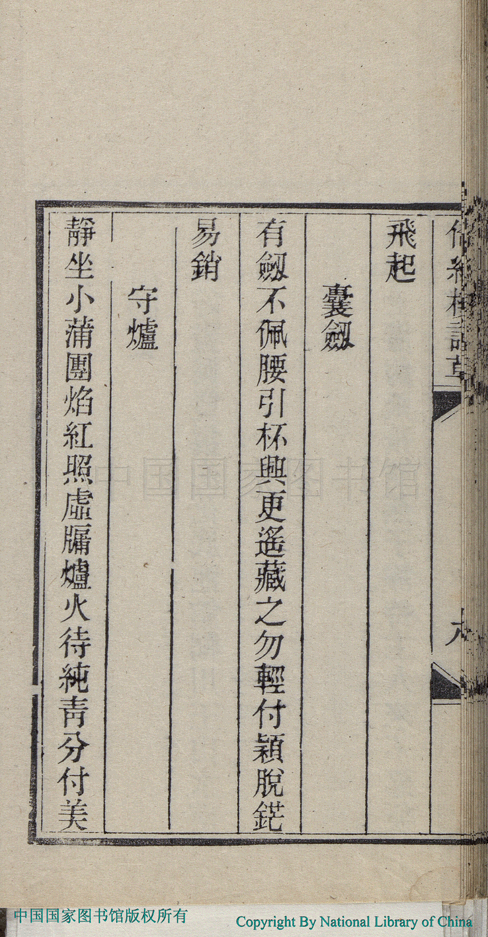 飛起
囊劒
有劒不佩腰引杯興更遙藏之勿輕付穎脫鋩
易銷
守爐
靜坐小蒲團焰紅照虛牖爐火待純靑分付美
中国国家图书馆
中国国家图书馆版权所有
Copyright By National Library of China